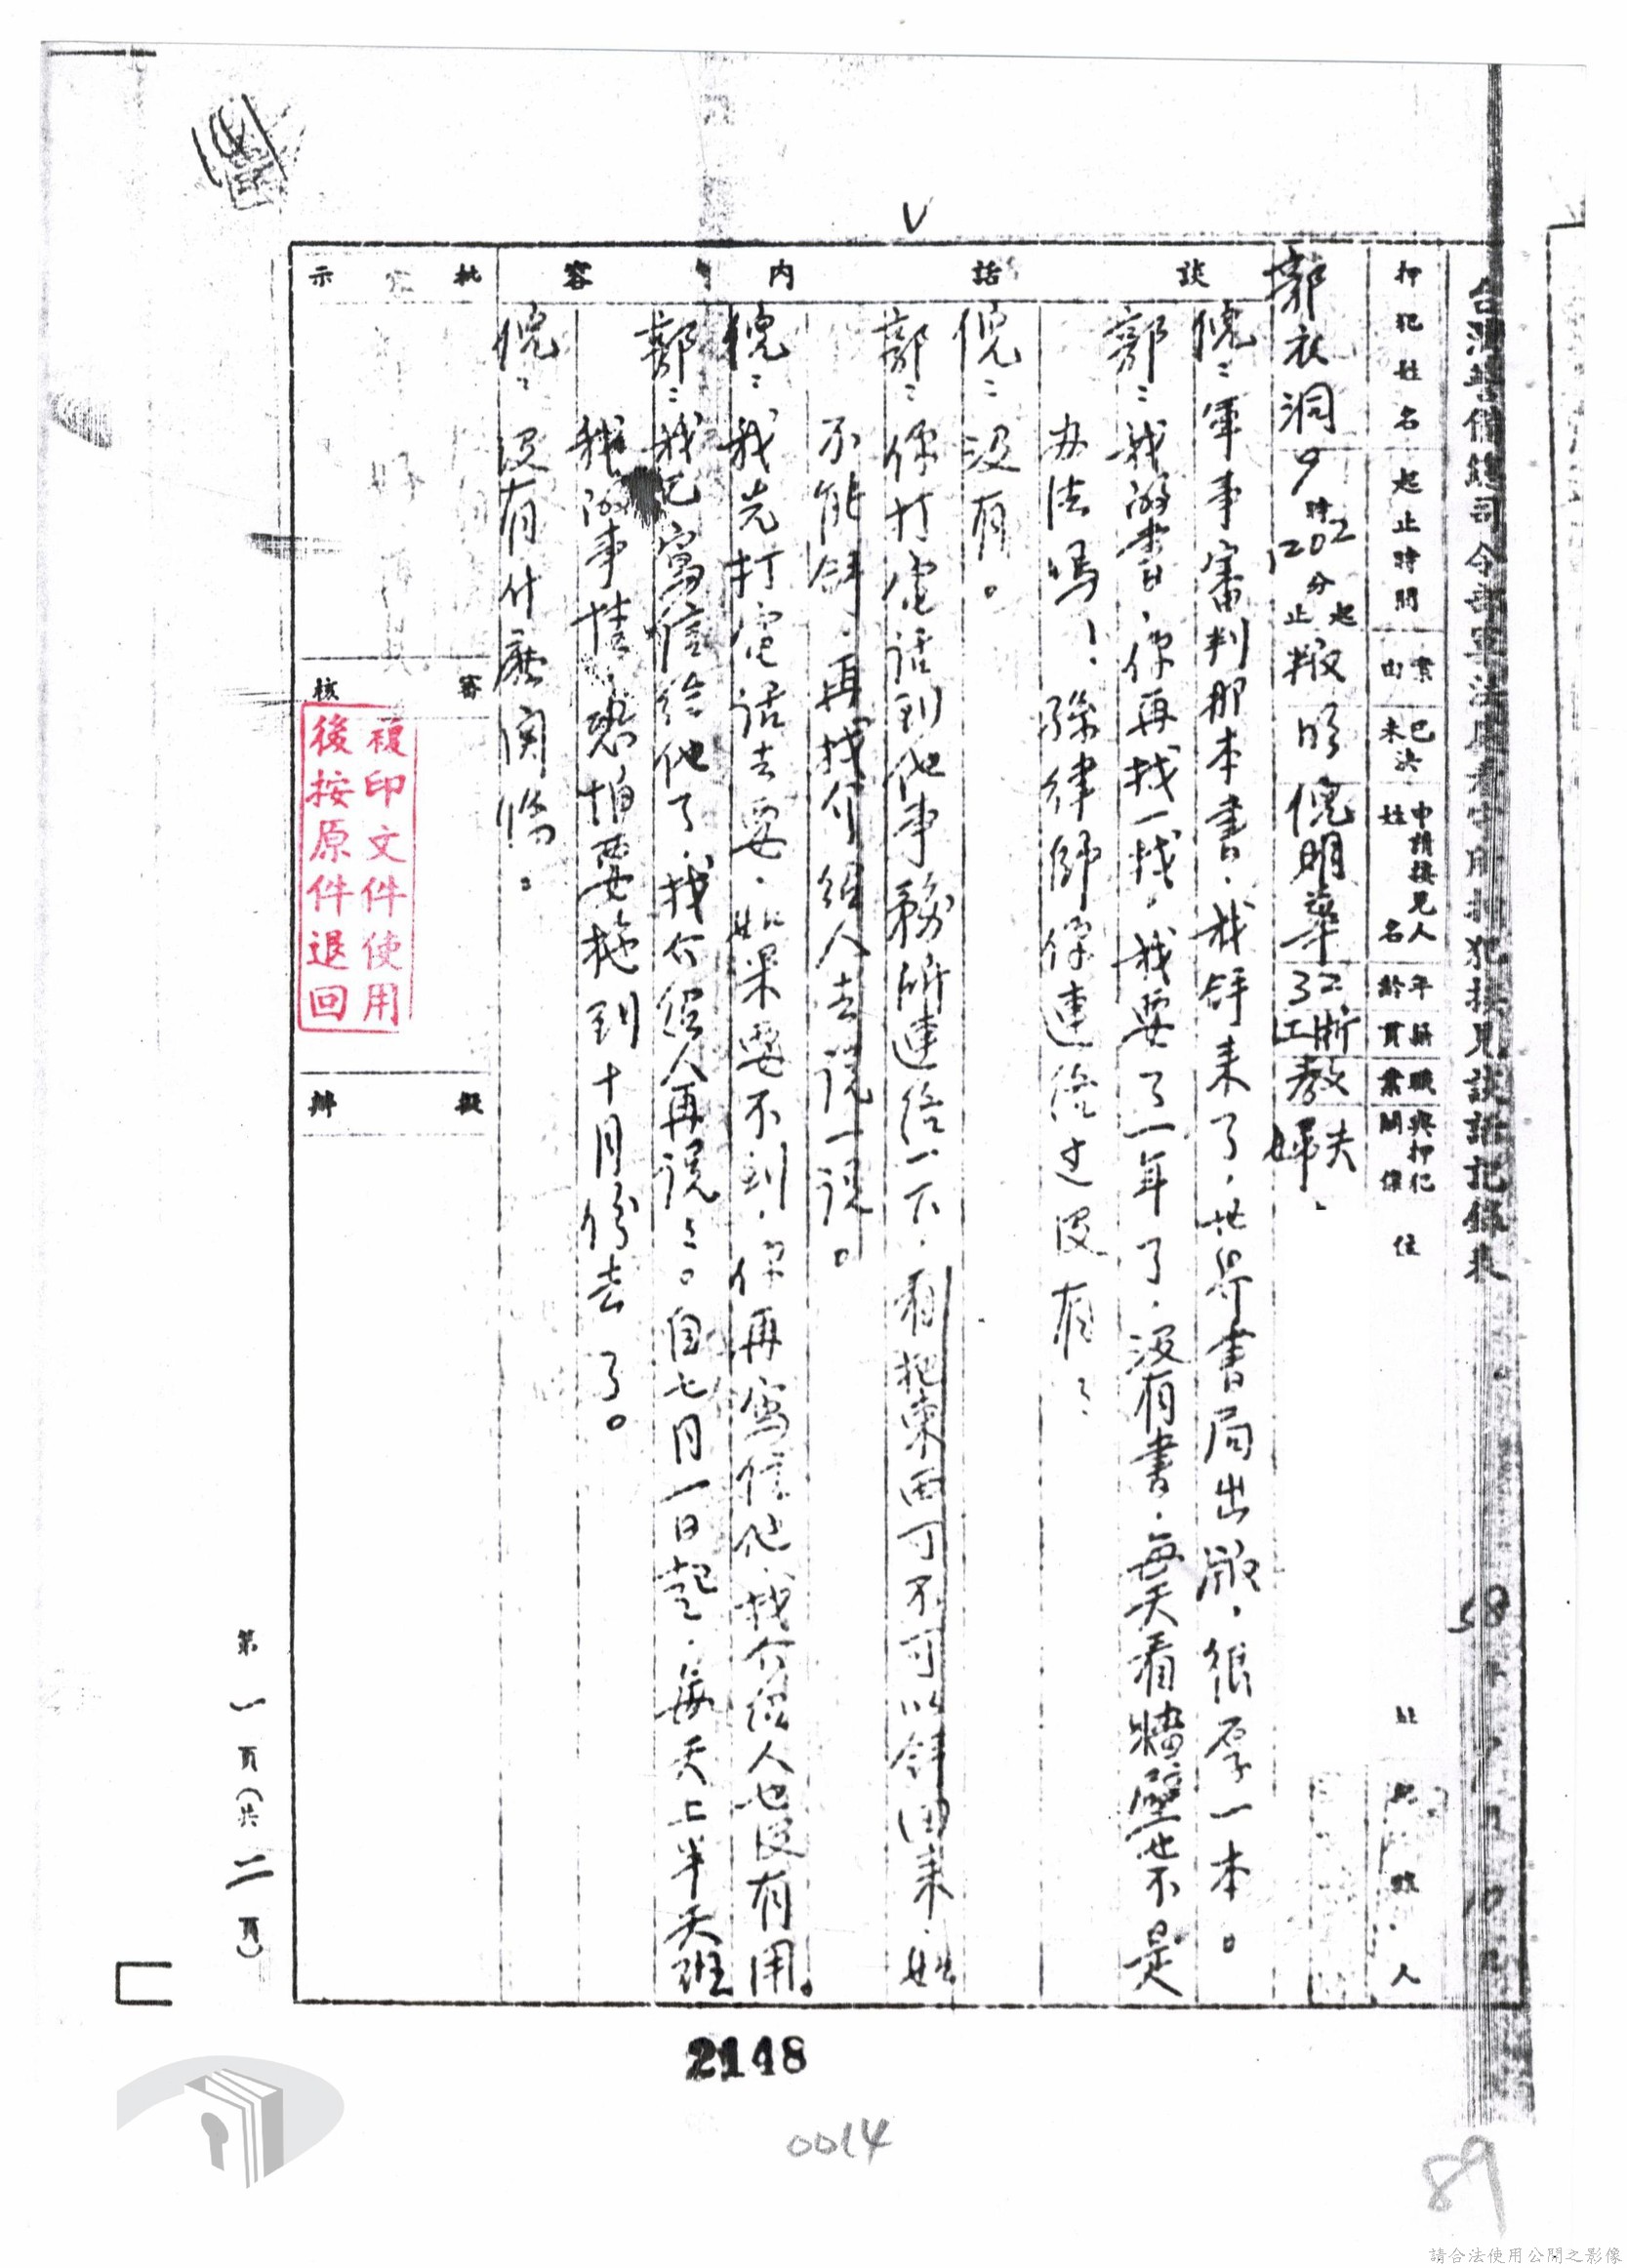 台灣警備總司令部軍法處看守所押犯接見談話記錄表
58
押犯姓名
起止時間
案由
已決未決
申請接見人姓名
年齡
籍貫
職業
與押犯關係
住
址
人
郭衣洞
9時
分起
分止
叛
倪明華
32
浙江
教
夫婦
談話內容
倪：軍事審判那本書，我拿來了，世界書局出版，很厚一本。
郭：我的書，你再找一找，我要了一年了，沒有書，每天看牆壁也不是
办法嗎！孫律師你連絡过没有？
倪：没有。
郭：你打電話到他事務所連絡一下，看把東西可不可以拿回來，如
不能拿，再找介紹人去說一說。
倪：我先打電話去要，如果要不到，你再寫信他，找介紹人也没有用。
郭：我已寫信給他了，找介紹人再說說。自七月一日起，每天上半天班
我的事情，恐怕要拖到十月份去了。
倪：没有什麼関係。
批示
審核
擬辦
複印文件使用
後按原件退回
第一頁（共二頁）
2148
0014
89
請合法使用公開之影像